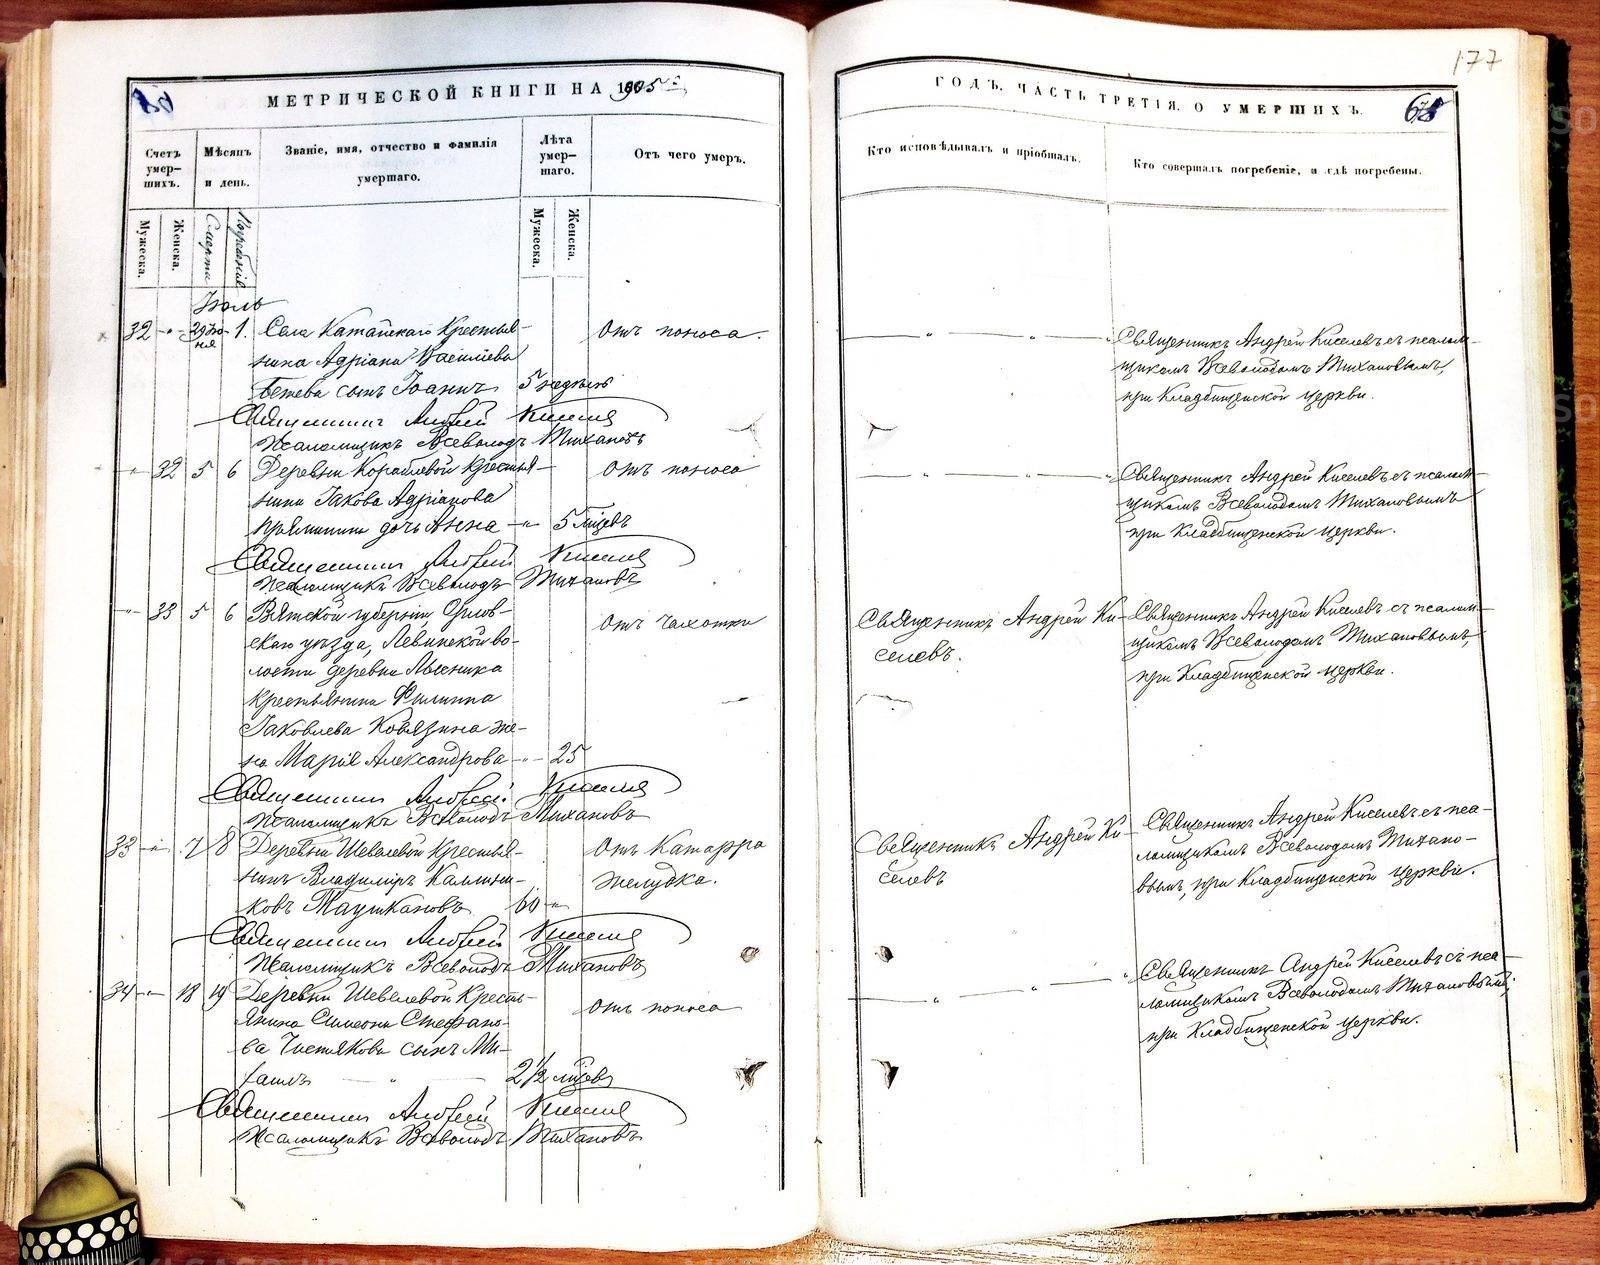 177
68
МЕТРИЧЕСКОЙ КНИГИ НА 1905 г.
ГОДЪ, ЧАСТЬ ТРЕТІЯ, О УМЕРШИХЪ.
68
Счетъ умер-шихъ.
Мѣсяцъ и день.
Званіе, имя, отчество и фамилія умершаго.
Лѣта умер-шаго.
Отъ чего умеръ.
Кто исповѣдывалъ и пріобщалъ.
Кто совершалъ погребеніе, и гдѣ погребены.
Мужеска.
Женска.
Смерти
Погребенія
Мужеска.
Женска.
Іюль
32 - " - 29 Ію- 1. Села Катайскаго Крестья-
ня
нина Адріана Василіева
сынъ Іоаннъ 5 недѣль
Отъ поноса.
" " "
Священникъ Андрей Киселевъ съ псалом-
щикомъ Всеволодомъ Тихановымъ,
при Кладбищенской церкви.
Священникъ Андрей Киселев
Псаломщикъ Всеволодъ Тихановъ
" 32 5 6 Деревни Корабленой Крестья-
нина Іакова Адріанова
дочь Анна - " 5 мѣсцвъ
Отъ поноса
" " "
Священникъ Андрей Киселевъ съ псалом-
щикомъ Всеволодомъ Тихановымъ
при Кладбищенской церкви.
Священникъ Андрей Киселев
Псаломщикъ Всеволодъ Тихановъ
" 33 5 6 Вятской губерніи, Орлов-
скаго уѣзда, Левинской во-
лости деревни
крестьянина Филиппа
Іаковлева Ковязина же-
на Марія Александрова - " - 25
Отъ чахотки
Священникъ Андрей Ки-
селевъ.
Священникъ Андрей Киселевъ съ псалом-
щикомъ Всеволодомъ Тихановымъ,
при Кладбищенской церкви.
Священникъ Андрей Киселев
Псаломщикъ Всеволодъ Тихановъ
33 - " - 7 8 Деревни Шевелевой Крестья-
нинъ Владиміръ Каллини-
ковъ Таушкановъ 60 - "
Отъ Катарра
желудка.
Священникъ Андрей Ки-
селевъ
Священникъ Андрей Киселевъ съ пса-
ломщикомъ Всеволодомъ Тихано-
вымъ, при Кладбищенской церкви.
Священникъ Андрей Киселев
Псаломщикъ Всеволодъ Тихановъ
34 - " - 18 19 Деревни Шевелевой Кресть-
янина Симеона Стефано-
ва Чистякова сынъ Ми-
хаилъ - " - 2 1/2 мѣсцв
Отъ поноса
" " "
Священникъ Андрей Киселевъ съ пса-
ломщикомъ Всеволодомъ Тихановымъ,
при Кладбищенской церкви.
Священникъ Андрей Киселев
Псаломщикъ Всеволодъ Тихановъ